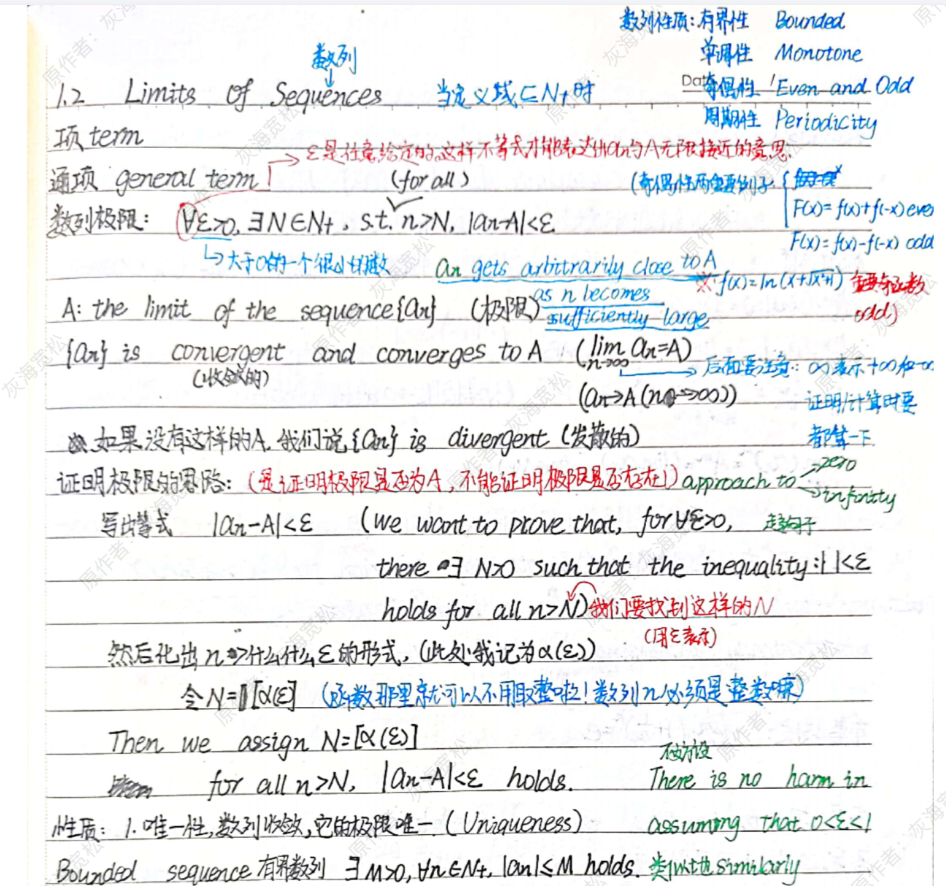 数列性质: 有界性 Bounded
单调性 Monotone
奇偶性 Even and Odd
周期性 Periodicity
数列
1.2 Limits Of Sequences 当定义域⊆N+时
项 term
ε是任意给定的,这样不等式才能表达出an与A无限接近的意思.
通项 general term (for all)
(奇偶性两个重要例子:
F(x)=f(x)+f(-x) even
F(x)=f(x)-f(-x) odd
数列极限: ∀ε>0, ∃N∈N+, s.t. n>N, |an-A|<ε
大于0的一个很小的数
an gets arbitrarily close to A
as n becomes
sufficiently large
odd)
A: the limit of the sequence {an} (极限)
{an} is convergent and converges to A (lim an=A)
n→∞
(收敛的)
后面要注意: ∞表示+∞和-∞
(an→A(n→∞))
证明/计算时要
都算一下.
如果没有这样的A, 我们说{an} is divergent (发散的)
证明极限的思路: (是证明极限是否为A, 不能证明极限是否存在!) approach to zero
infinity
写出等式 |an-A|<ε (we want to prove that, for ∀ε>0,
there ∃ N>0 such that the inequality: | |<ε
holds for all n>N) 我们要找到这样的N
(用ε表示)
然后化出n>什么什么ε的形式, (此处我记为α(ε))
令N=[α(ε)] (函数那里就可以不用取整啦! 数列n必须是整数嘛)
Then we assign N=[α(ε)]
不妨设
for all n>N, |an-A|<ε holds. There is no harm in
性质: 1. 唯一性, 数列收敛, 它的极限唯一 (Uniqueness) assuming that 0<ε<1
Bounded sequence 有界数列 ∃M>0, ∀n∈N+, |an|≤M holds. 类似 similarly